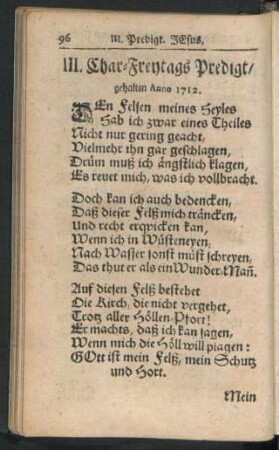 96 III. Predigt. JEsus,
III. Char-Freytags Predigt/
gehalten Anno 1712.
DEn Felsen meines Heyles
Hab ich zwar eines Theiles
Nicht nur gering geacht,
Vielmehr ihn gar geschlagen,
Drüm muß ich ängstlich klagen,
Es reuet mich, was ich vollbracht.
Doch kan ich auch bedencken,
Daß dieser Felß mich träncken,
Und recht erqvicken kan,
Wenn ich in Wüsteneyen;
Nach Wasser sonst müst schreyen,
Das thut er als ein Wunder-Mañ.
Auf diesen Felß bestehet
Die Kirch, die nicht vergehet,
Trotz aller Höllen-Pfort!
Er machts, daß ich kan sagen,
Wenn mich die Höll will plagen:
GOtt ist mein Felß, mein Schutz
und Hort.
Mein